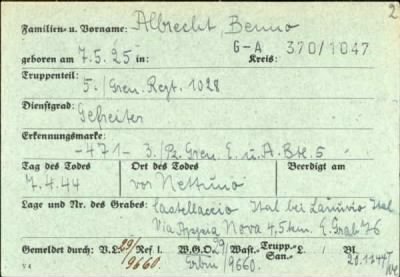 2
Familien- u. Vorname: Albrecht, Benno
G-A 370/1047
geboren am 7.5.25 in: Kreis:
Truppenteil:
5./Gren. Regt. 1028
Dienstgrad:
Gefreiter
Erkennungsmarke:
-471- 3./Pz. Gren. E. u. A. Btl. 5
Tag des Todes Ort des Todes Beerdigt am
7.4.44 vor Nettuno
Lage und Nr. des Grabes: Castellaccio Ital bei Lanuvio Ital
Via Appia Nova 4,5 km. E. Grab 76
Gemeldet durch: V.L. 29/ Ref I. W.G.O. 29/ Wast.- Trupp.- San.- L. Bl.
9660. Erbin/9660. 20.12.44
V 4